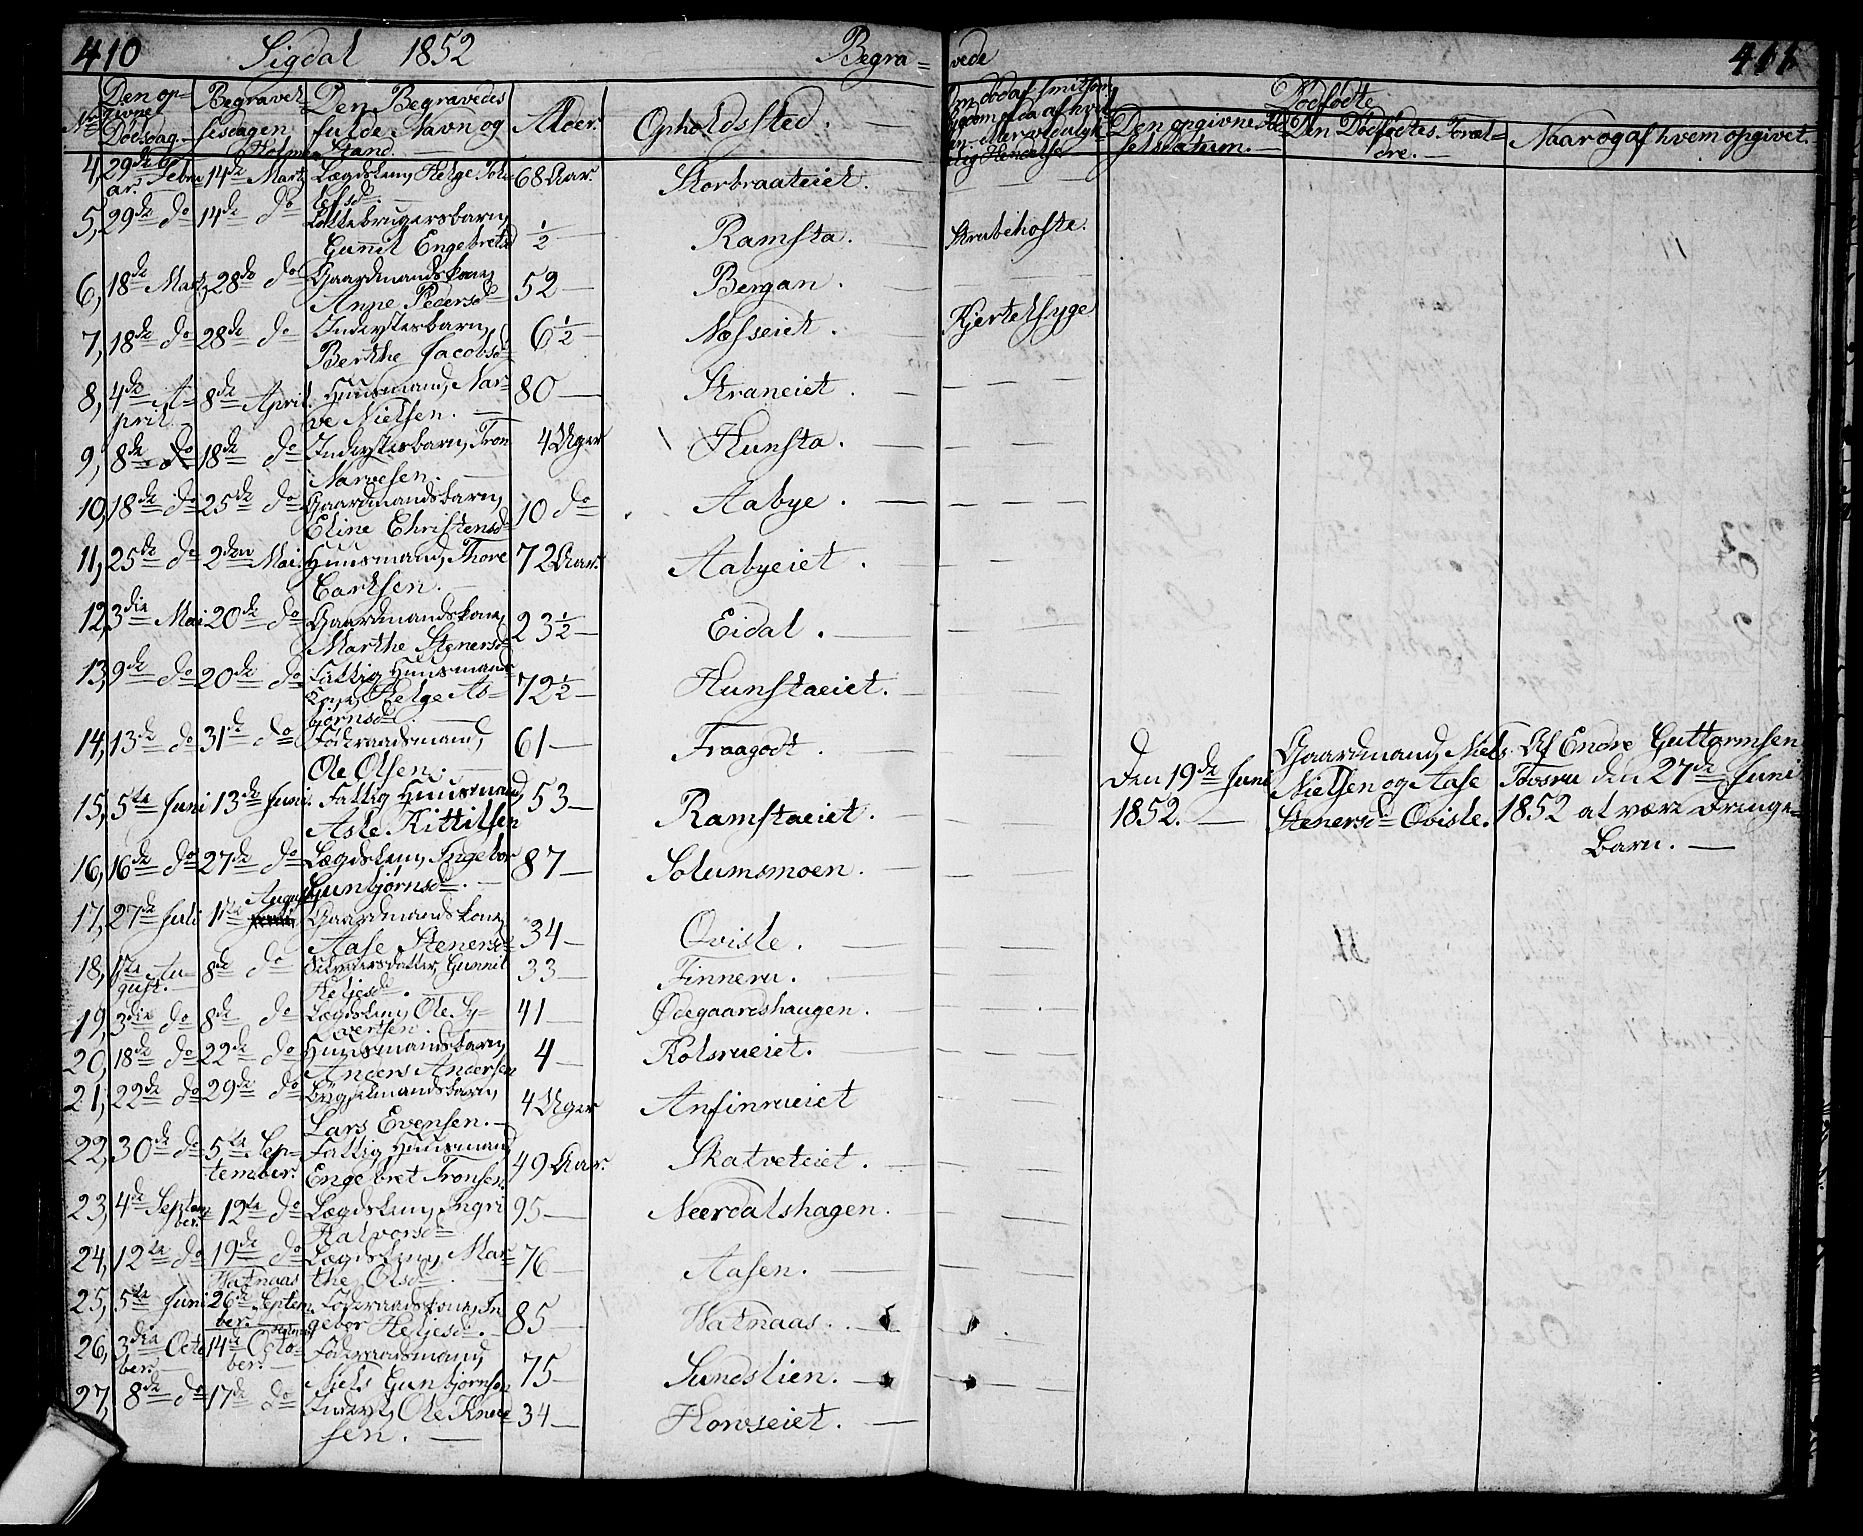 410 Sigdal 1852 Begra=
vede 411
No Den op=
givne
Dödsdag. Begravel=
sesdagen Den Begravedes
fulde Navn og
Stand. Alder. Opholdssted.
Dödfödte
Den Dödfödtes Foræl=
dre. Naar og af hvem opgivet.
Holmen
4, 29de Febru
ar. 14de Marts Lægdslem, Helge Tole
lefsd 68 Aar. Storbraateiet.
5, 29de do 14de do barn,
Gunil Engebretsd ½ Ramsta. Strubehoste.
6, 18de Marts 28de do Gaardmandskone,
Anne Pedersd 52 Bergan.
7, 18de do 28de do Inderstesbarn,
Berthe Jacobsd 6½ Næsseiet. Kjertelsyge
8, 4de A=
pril. 8de April. Huusmand, Nar=
ve Nielsen. 80 Straneiet.
9, 8de do 18de do Inderstesbarn, Tron
Narvesen. 4 Uger Hunsta.
10, 18de do 25de do Gaardmandsbarn,
Eline Christensd 10 do Aabye.
11, 25de do 2den Mai. Huusmand, Thore
Carlsen. 72 Aar. Aabyeiet.
12, 3die Mai 20de do Gaardmandskone,
Marthe Stenersd 23½ Eidal.
13, 9de do 20de do Fattig Huusmands
Kone, Helge As=
björnsd. 72½ Hunstaeiet.
14, 13de do 31de do Föderaadsmand,
Ole Olsen. 61 Fraagodt.
Den 19de Juni
1852. Gaardmand, Niels
Nielsen og Aase
Stenersd Qvisle. Af Endre Guttormsen
den 27de Juni
1852 at være Drenge=
Barn.
15, 5te Juni 13de Juni. Fattig Huusmand,
Asle Kittilsen 53 Ramstaeiet.
16, 16de do 27de do Lægdslem, Ingebor
Gunbjörnsd. 87 Solumsmoen.
17, 27de Juli 1te August Gaardmandskone,
Aase Stenersd 34 Qvisle.
18, 1te Au=
gust. 8de do Gunnil
Heljesd. 33 Finneru.
19, 3die do 8de do Lægdslem, Ole Sy=
vertsen. 41 Ödegaardshaugen.
20, 18de do 22de do Huusmandsbarn,
Anders Andersen 4 Kolsrueiet.
21, 22de do 29de do
Lars Evensen. 4 Uger Anfinrueiet
22, 30de do 5te Sep=
tember. Fattig Huusmand
Engebret Tronsen. 49 Aar. Skatveteiet.
23, 4de Septem
ber. 12te do Lægdslem, Ingri
Halvorsd 95 Neerdalshagen.
24, 12te do 19de do Lægdslem, Mar=
the Olsd. 76 Aasen.
Vatnaas
25, 5te Juni 26de Septem
ber. Föderaadskone, In
gebor Heljesd. 85 Vatnaas.
26, 3die Octo
ber. 14de Octo=
ber. Föderaadsmand,
Niels Gunbjörnsen 75 Sundslien.
27, 8de do 17de do Inderst, Ole Knud
sen. 34 Horvseiet.